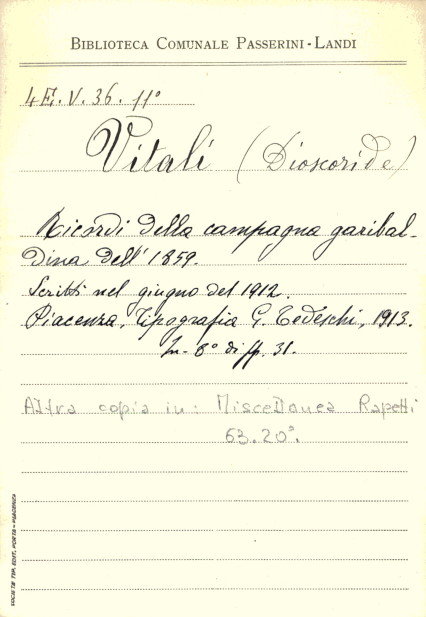 BIBLIOTECA COMUNALE PASSERINI-LANDI
4E.V.36.11°
Vitali (Dioscoride)
Ricordi della campagna garibal-
dina dell'1859.
Scritti nel giugno del 1912.
Piacenza, Tipografia G. Tedeschi, 1913.
In-8° di pp. 31.
Altra copia in: Miscellanea Rapetti
63.20°.
SOCIETÀ TIP. EDIT. PORTA - PIACENZA